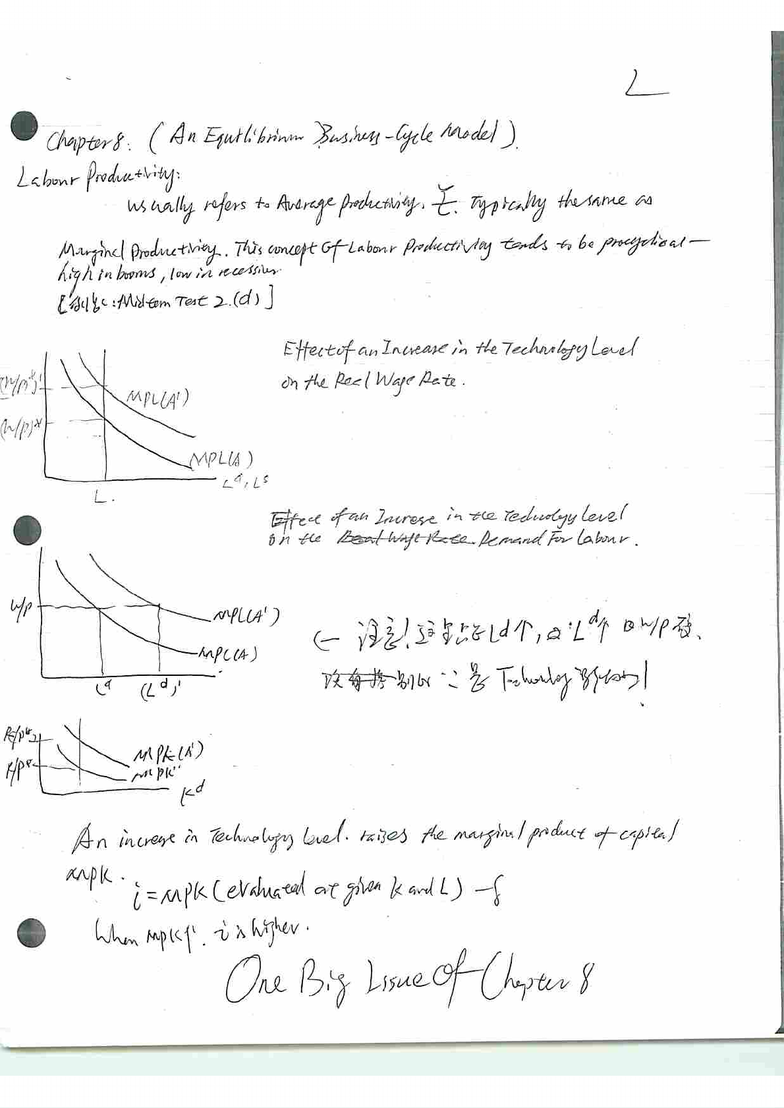 L
Chapter 8. (An Equilibrium Business-Cycle Model).
Labour Productivity:
usually refers to Average Productivity. Typically the same as
Marginal Productivity. This concept of Labour Productivity tends to be procyclical—
high in booms, low in recession
: Midterm Test 2.(d)]
Effect of an Increase in the Technology Level
on the Real Wage Rate.
(w/p)*'
(w/p)*
MPL(A')
MPL(A)
L.
Ld, Ls
Effect of an Increase in the Technology Level
on the Real Wage Rate. Demand For Labour.
w/p
MPL(A')
MPL(A)
Ld
(Ld)'
← 注意! Ld↑, Ld↑ w/p
Technology
MPK(A')
MPK
Kd
An increase in Technology Level. raises the marginal product of capital
MPK.
i = MPK (evaluated at given K and L) - δ
When MPK↑. i is higher.
One Big Issue Of Chapter 8